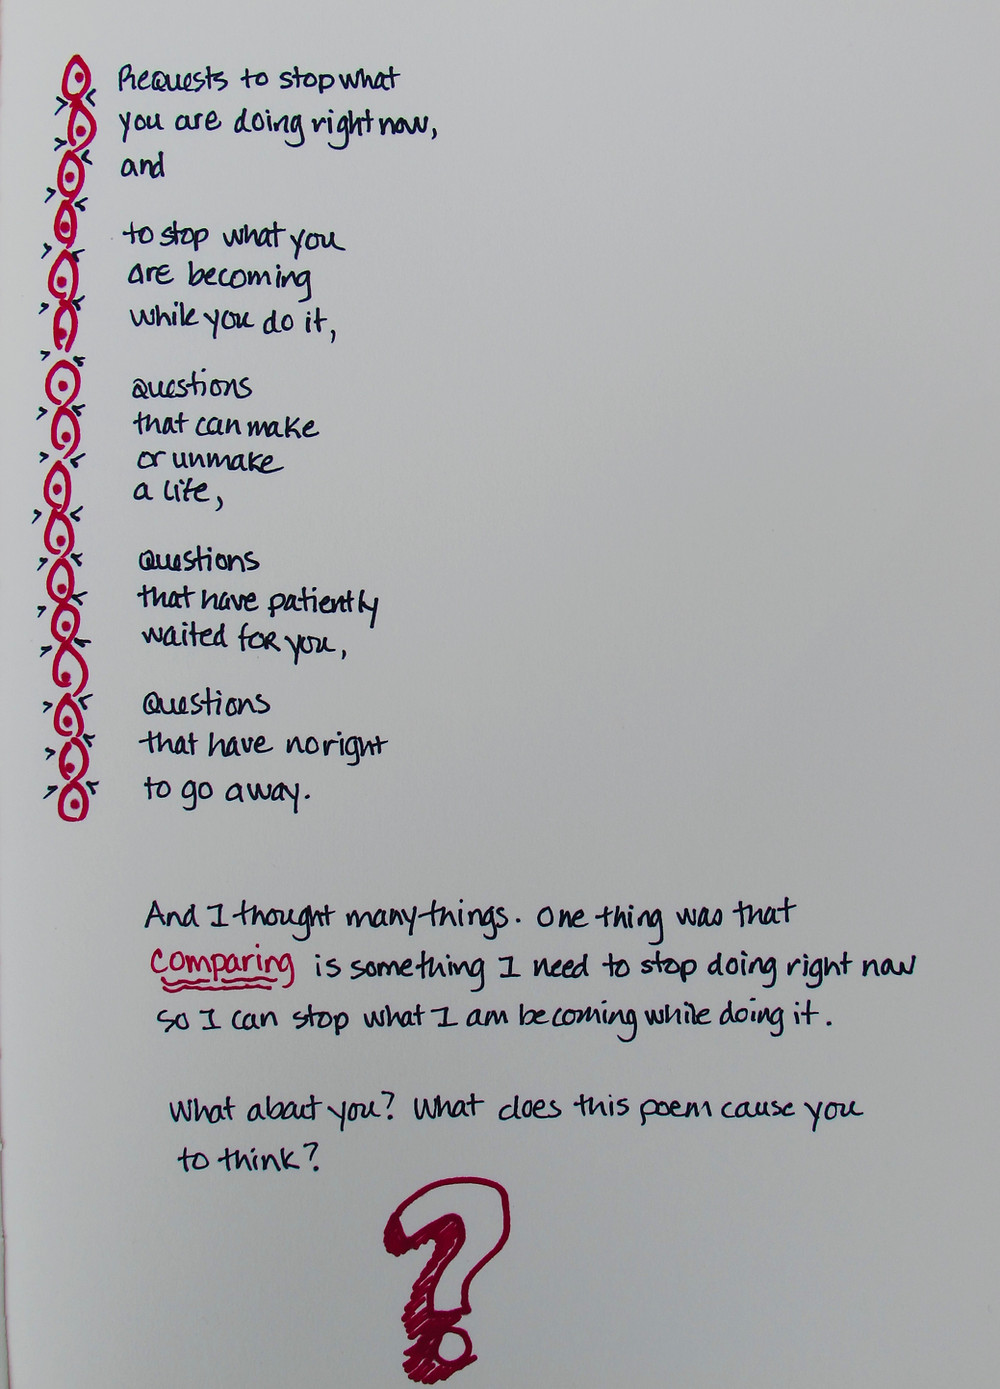 Requests to stop what
you are doing right now,
and
to stop what you
are becoming
while you do it,
questions
that can make
or unmake
a life,
questions
that have patiently
waited for you,
questions
that have no right
to go away.
And I thought many things. One thing was that
comparing is something I need to stop doing right now
so I can stop what I am becoming while doing it.
What about you? What does this poem cause you
to think?
?